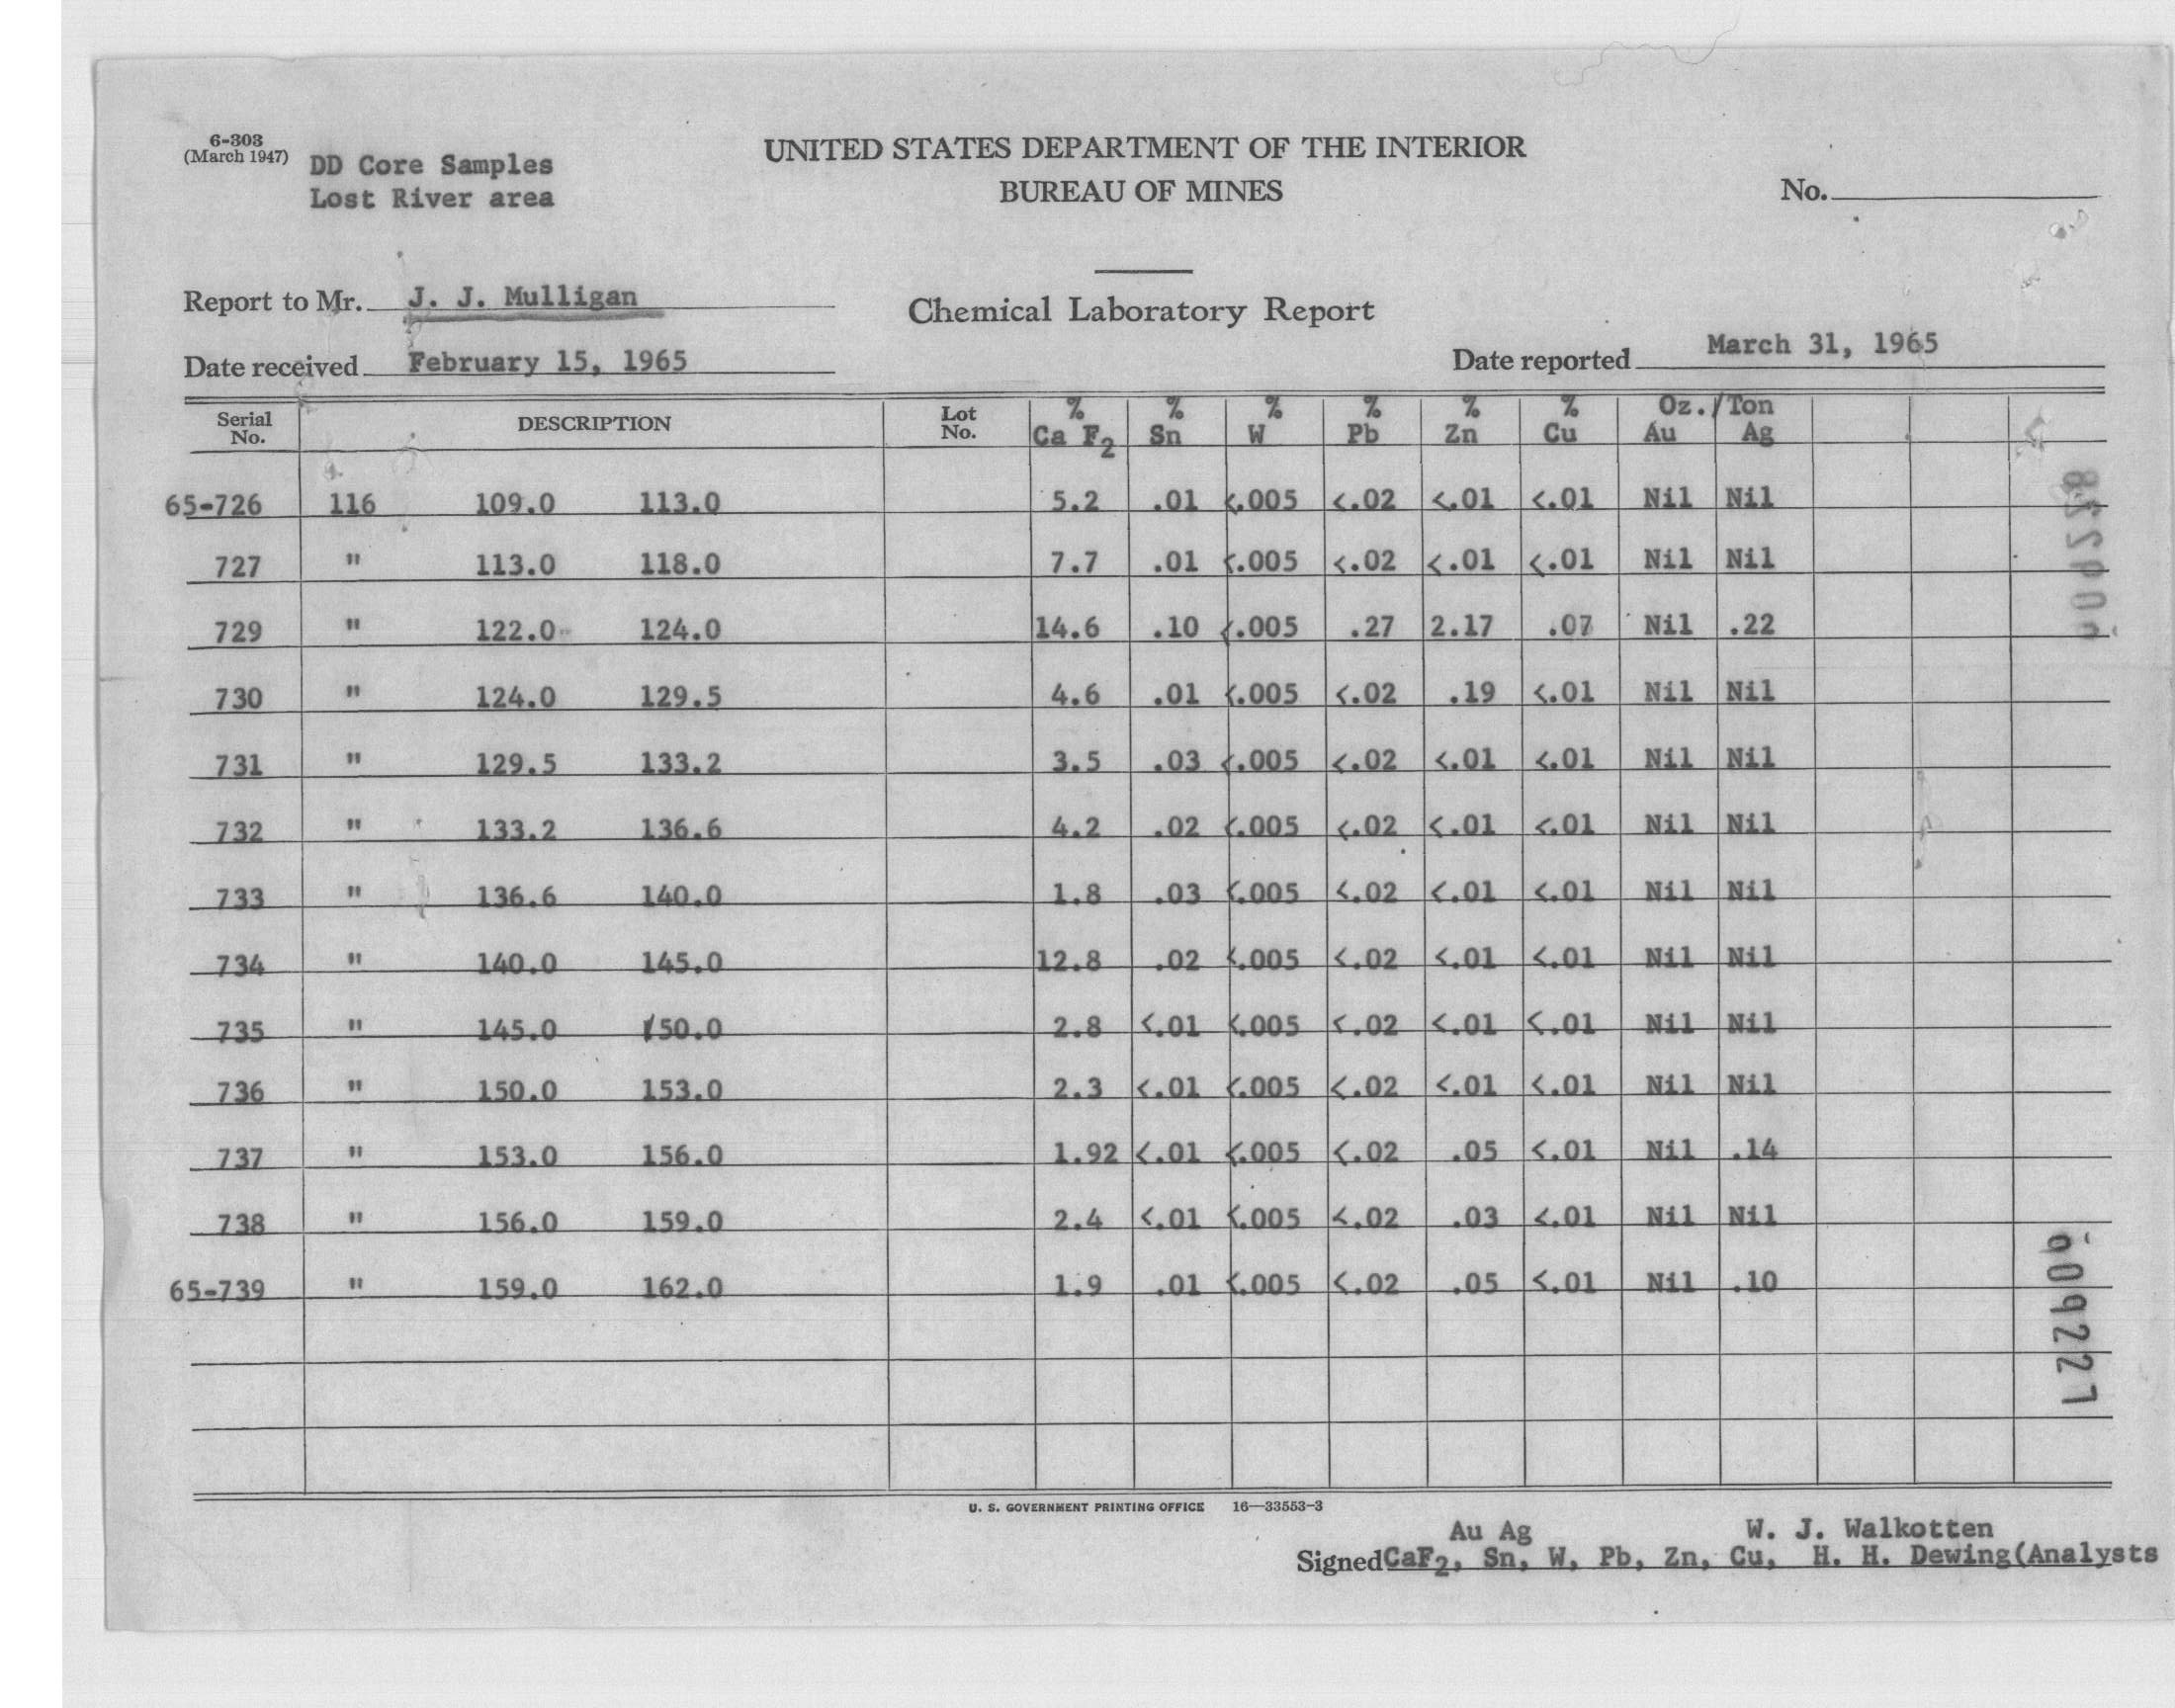 6-303
(March 1947)
DD Core Samples
Lost River area
UNITED STATES DEPARTMENT OF THE INTERIOR
BUREAU OF MINES
No.
Report to Mr. J. J. Mulligan
Chemical Laboratory Report
Date received February 15, 1965
Date reported March 31, 1965
Serial No. DESCRIPTION Lot No. % Ca F2 % Sn % W % Pb % Zn % Cu Oz./Ton Au Ag
65-726 116 109.0 113.0 5.2 .01 <.005 <.02 <.01 <.01 Nil Nil
727 " 113.0 118.0 7.7 .01 <.005 <.02 <.01 <.01 Nil Nil
729 " 122.0 124.0 14.6 .10 <.005 .27 2.17 .07 Nil .22
730 " 124.0 129.5 4.6 .01 <.005 <.02 .19 <.01 Nil Nil
731 " 129.5 133.2 3.5 .03 <.005 <.02 <.01 <.01 Nil Nil
732 " 133.2 136.6 4.2 .02 <.005 <.02 <.01 <.01 Nil Nil
733 " 136.6 140.0 1.8 .03 <.005 <.02 <.01 <.01 Nil Nil
734 " 140.0 145.0 12.8 .02 <.005 <.02 <.01 <.01 Nil Nil
735 " 145.0 150.0 2.8 <.01 <.005 <.02 <.01 <.01 Nil Nil
736 " 150.0 153.0 2.3 <.01 <.005 <.02 <.01 <.01 Nil Nil
737 " 153.0 156.0 1.92 <.01 <.005 <.02 .05 <.01 Nil .14
738 " 156.0 159.0 2.4 <.01 <.005 <.02 .03 <.01 Nil Nil
65-739 " 159.0 162.0 1.9 .01 <.005 <.02 .05 <.01 Nil .10
U. S. GOVERNMENT PRINTING OFFICE 16—33553-3
Au Ag W. J. Walkotten
Signed CaF2, Sn, W, Pb, Zn, Cu, H. H. Dewing(Analysts